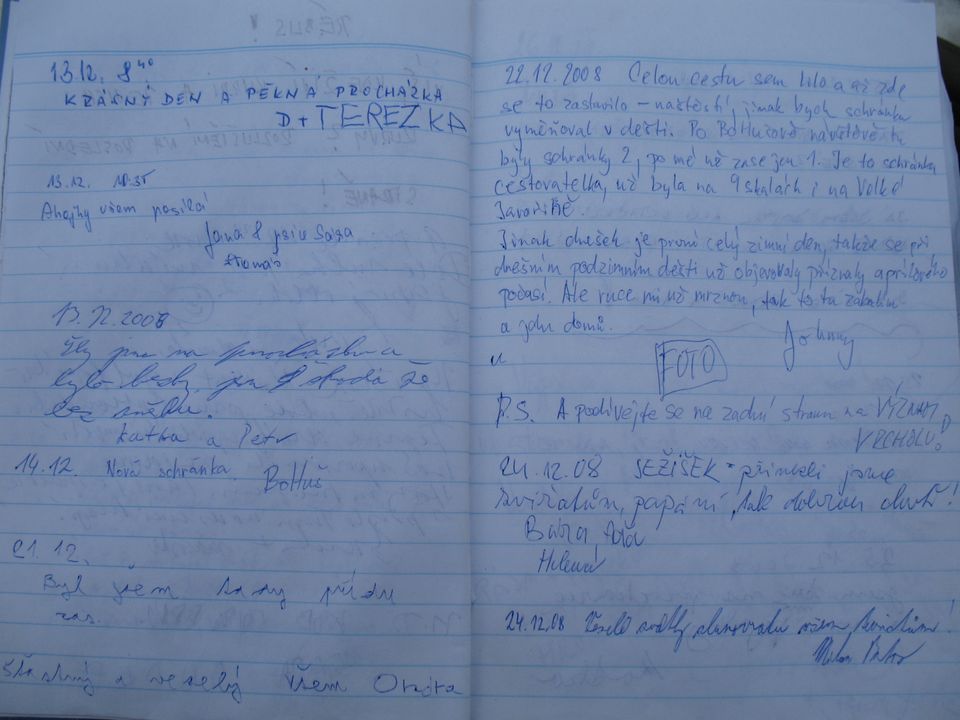 13.12. 8⁴⁰
KRÁSNÝ DEN A PĚKNÁ PROCHÁZKA
D + TEREZKA
13.12. 10.35
Ahojky všem posílá
Jana & psice Sára
13.12.2008
na procházku a
bylo hezky, jen škoda že
bez sněhu.
Katka a Petr
14.12. Nová schránka. BoHuš
21.12.
Byl jsem tady přídu
zas.
Šťastný a veselý všem Otrita
22.12.2008 Celou cestu sem lilo a až zde
se to zastavilo – naštěstí, jinak bych schránku
vyměňoval v dešti. Po BoHušově návštěvě tu
byly schránky 2, po mé už zase jen 1. Je to schránka
cestovatelka, už byla na 9 skalách i na Velké
Javořině.
Jinak dnešek je první celý zimní den, takže se při
dnešním podzimním dešti už objevovaly příznaky aprílového
počasí. Ale ruce mi už mrznou, tak to tu zabalím
a jdu domů.
Johnny
FOTO
P.S. A podívejte se na zadní stranu na VÝZNAM
VRCHOLU!
24.12.08 JEŽÍŠEK přinesli jsme
zvířatům papání, tak dobrou chuť!
Bára
Helena
24.12.08 Veselé svátky všem
Milan